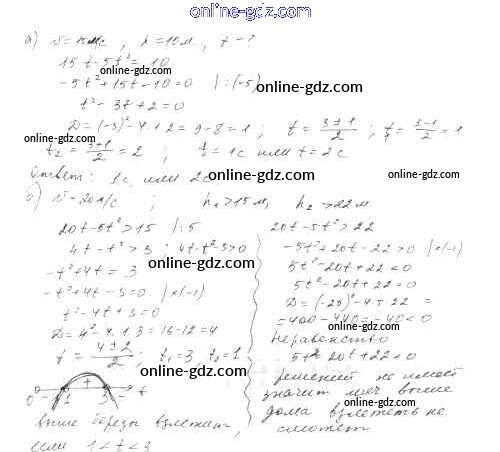 online-gdz.com
а) v = 15 м/с, h = 10 м, t - ?
15t - 5t² = 10
-5t² + 15t - 10 = 0 |:(-5)
online-gdz.com
online-gdz.com
t² - 3t + 2 = 0
D = (-3)² - 4·1·2 = 9 - 8 = 1; t = (3±1)/2; t₁ = (3-1)/2 = 1
online-gdz.com
t₂ = (3+1)/2 = 2; t = 1с или t = 2с
online-gdz.com
Ответ: 1с или 2с
online-gdz.com
online-gdz.com
б) v = 20 м/с; h₁ > 15 м, h₂ > 22 м
20t - 5t² > 15 |:5
4t - t² > 3; 4t - t² - 3 > 0
-t² + 4t = 3
online-gdz.com
-t² + 4t - 3 = 0 |×(-1)
t² - 4t + 3 = 0
D = 4² - 4·1·3 = 16 - 12 = 4
t = (4±2)/2; t₁ = 3 t₂ = 1
online-gdz.com
0 - 1 + 3 - t
online-gdz.com
выше березы взлетит,
если 1 < t < 3
20t - 5t² > 22
-5t² + 20t - 22 > 0 |×(-1)
5t² - 20t + 22 < 0
online-gdz.com
5t² - 20t + 22 = 0
D = (-20)² - 4·5·22 =
= 400 - 440 = -40 < 0
online-gdz.com
Неравенство
5t² - 20t + 22 < 0
online-gdz.com
решений не имеет
значит мяч выше
дома взлететь не
сможет